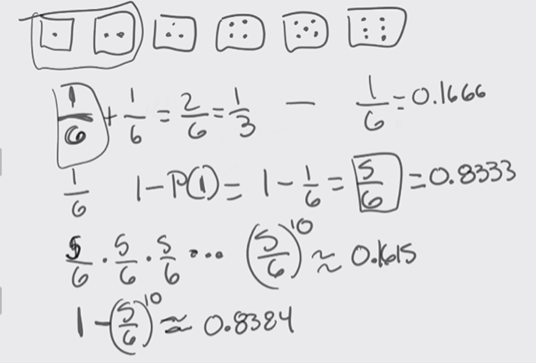 1/6 + 1/6 = 2/6 = 1/3 — 1/6 = 0.1666
1/6 1-P(1) = 1 - 1/6 = 5/6 = 0.8333
5/6 · 5/6 · 5/6 ... (5/6)^10 ≈ 0.1615
1 - (5/6)^10 ≈ 0.8384